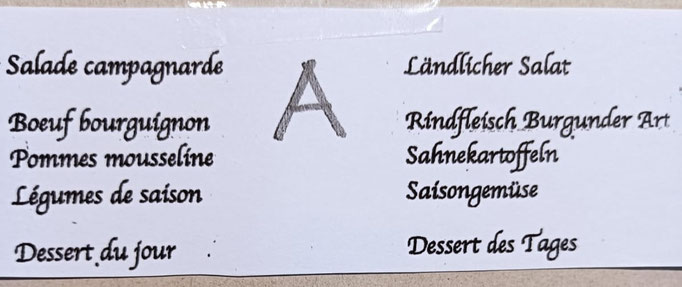 Salade campagnarde
Boeuf bourguignon
Pommes mousseline
Légumes de saison
Dessert du jour
A
Ländlicher Salat
Rindfleisch Burgunder Art
Sahnekartoffeln
Saisongemüse
Dessert des Tages